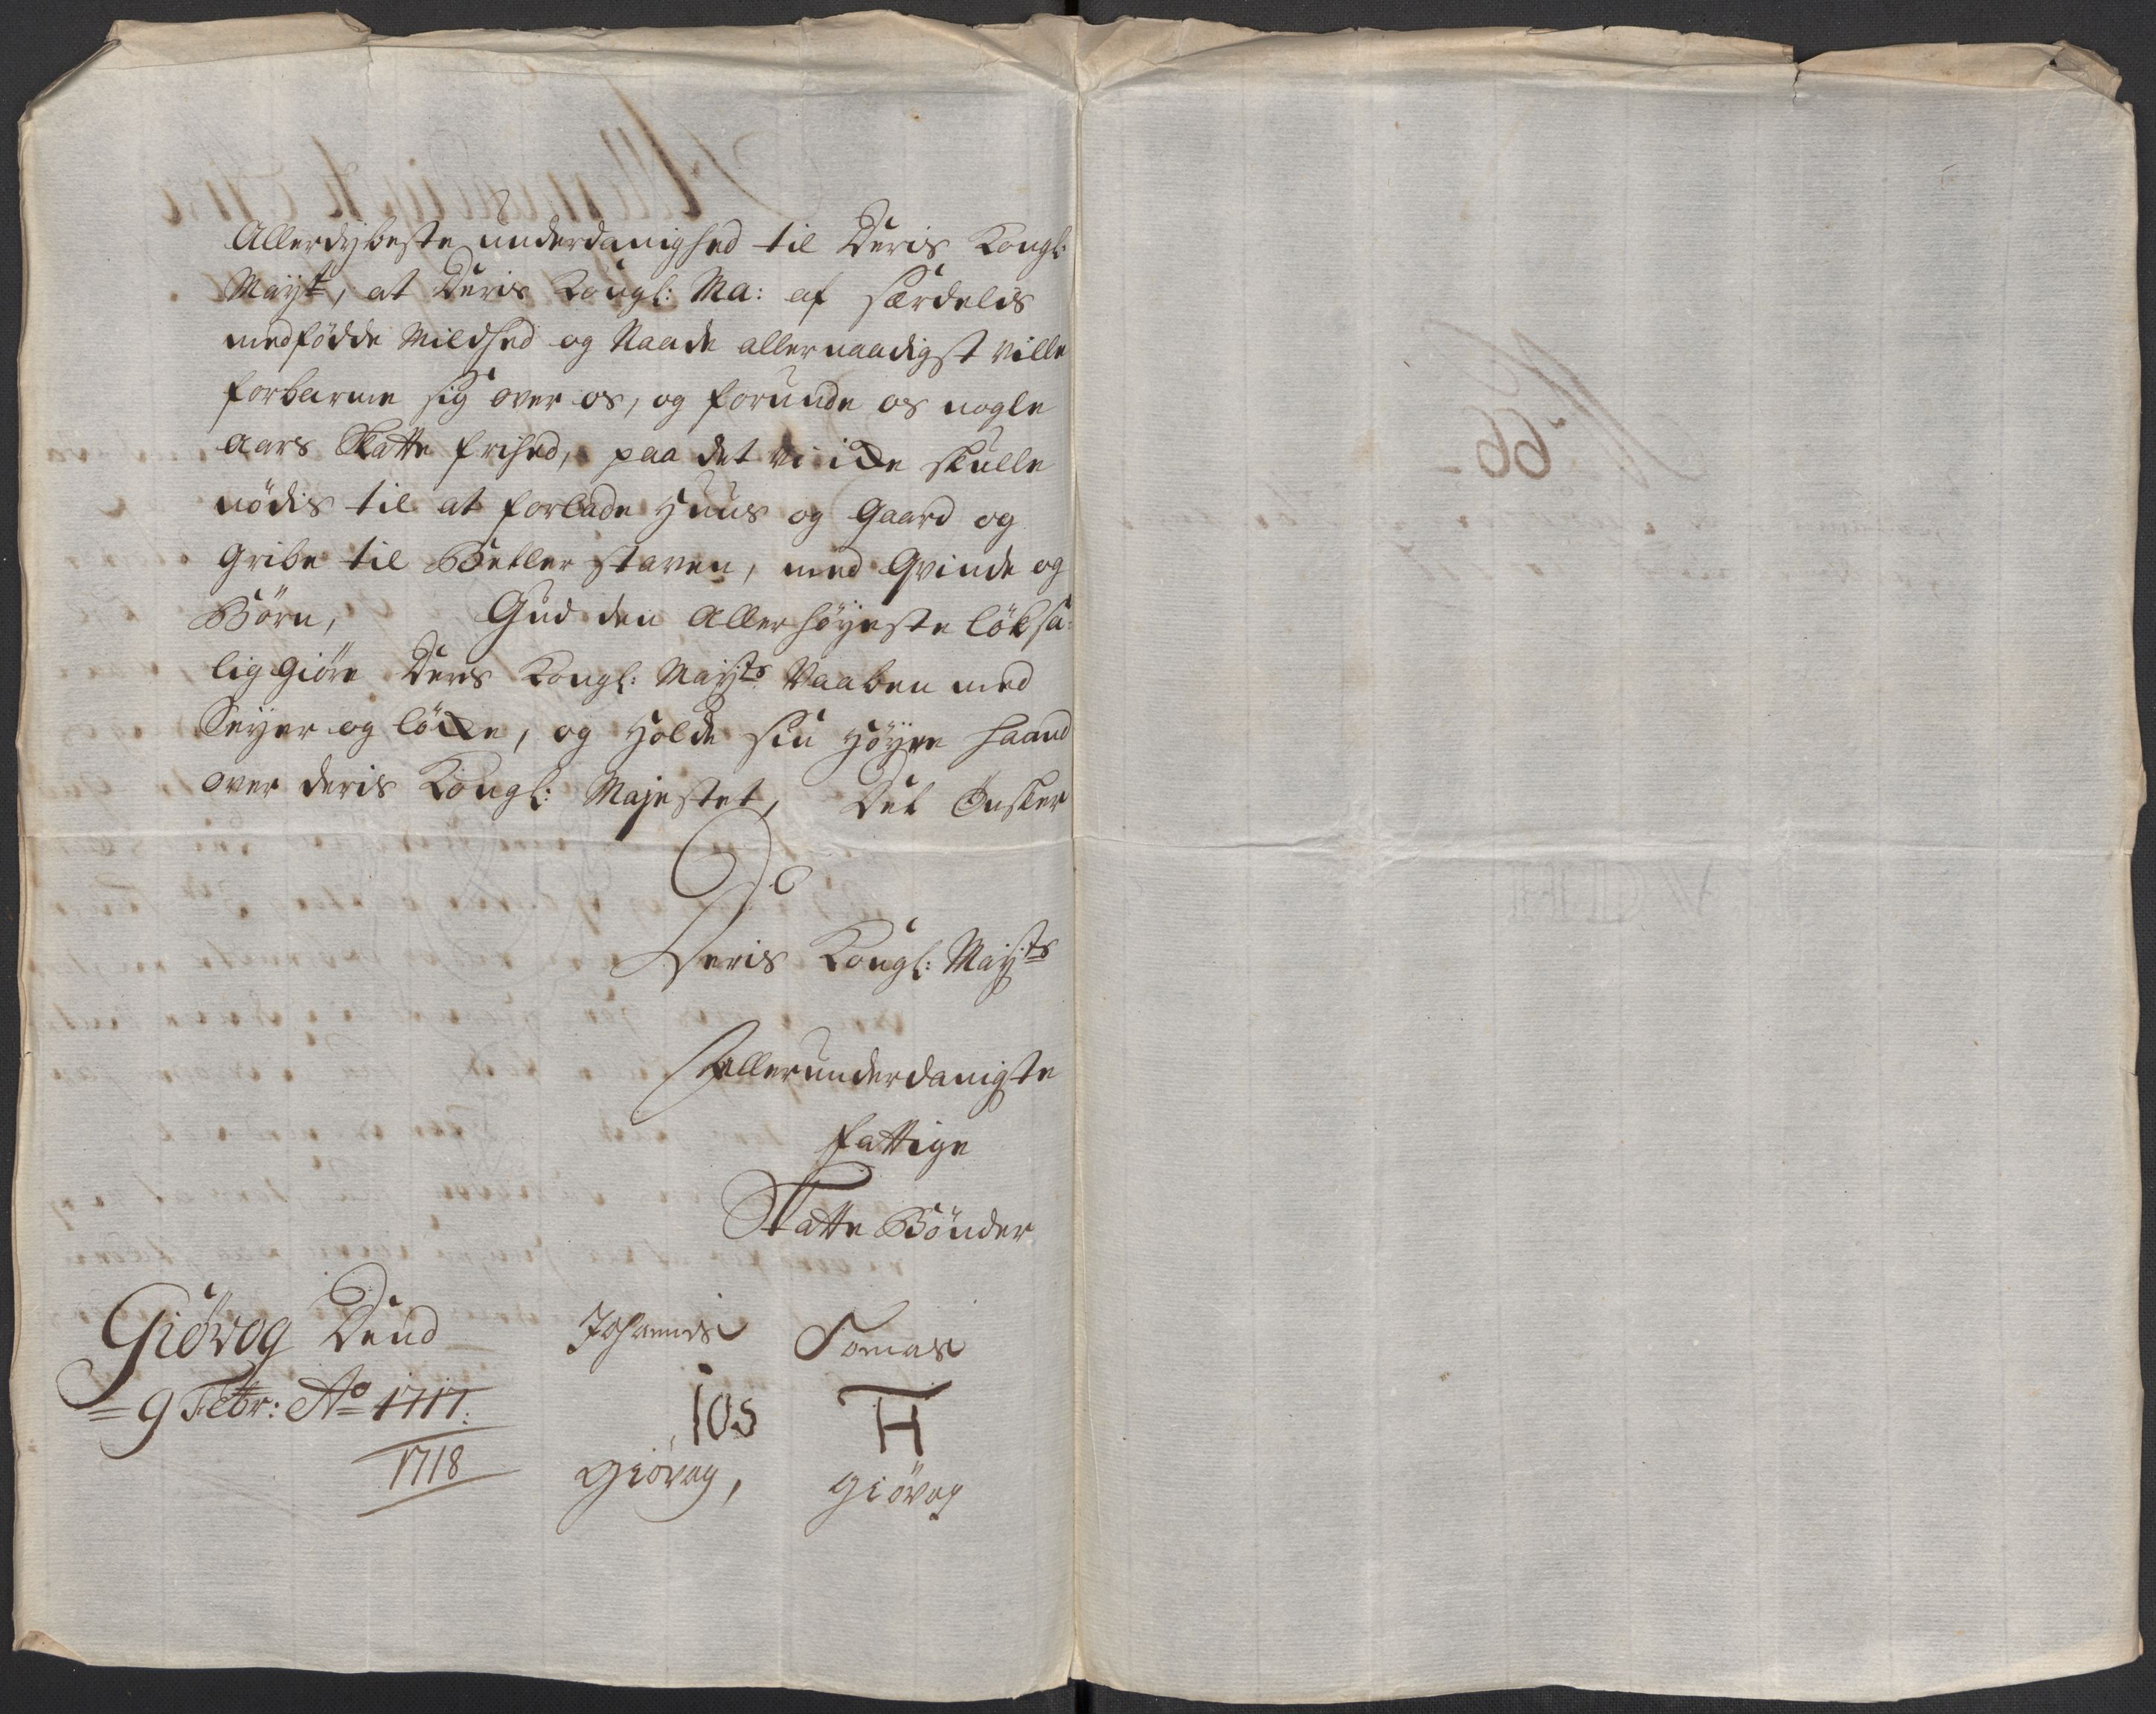 Allerdybeste underdanighed til Deris Kongl:
Mayt, at Deris Kongl: Ma: af særdelis
medfödde Mildhed og Naade allernaadigst ville
forbarme sig over os, og forunde os nogle
aars Skatte frihed, paa det vi icke skulle
nödis til at forlade Huus og Gaard og
Gribe til Betler staven, med Qvinde og
Börn, Gud den Allerhöyeste löksa-
lig giöre Deris Kongl: Mayts Vaaben med
Seyer og löcke, og Holde sin Höyre Haand
over deris Kongl: Majestet, Det Önsker
Deris Kongl: Mayts
Allerunderdanigste
fattige
Skatte Bönder
Giövog Dend
9 Febr: Ao 1717.
1718
Johannes
Tomas
IOS
TH
Giövog,
Giövog
No 66